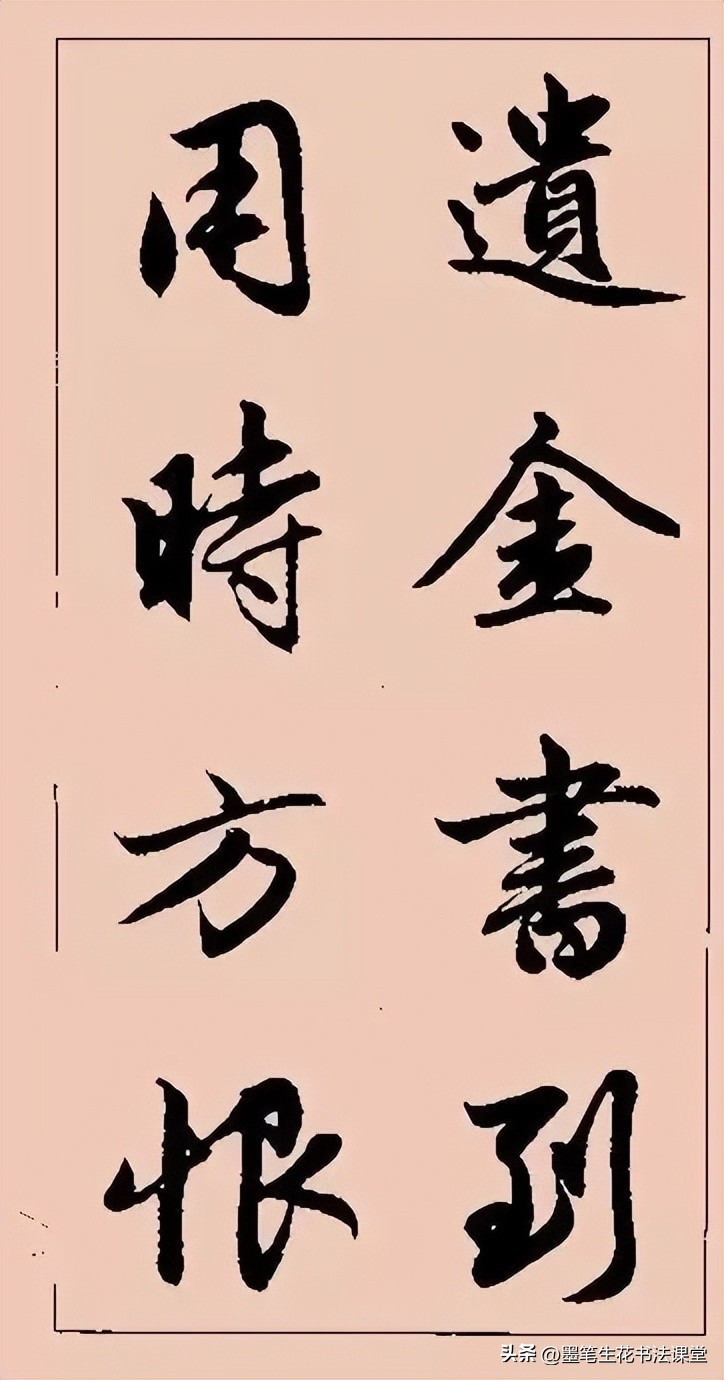 遺金書到
用時方恨
头条 @墨笔生花书法课堂